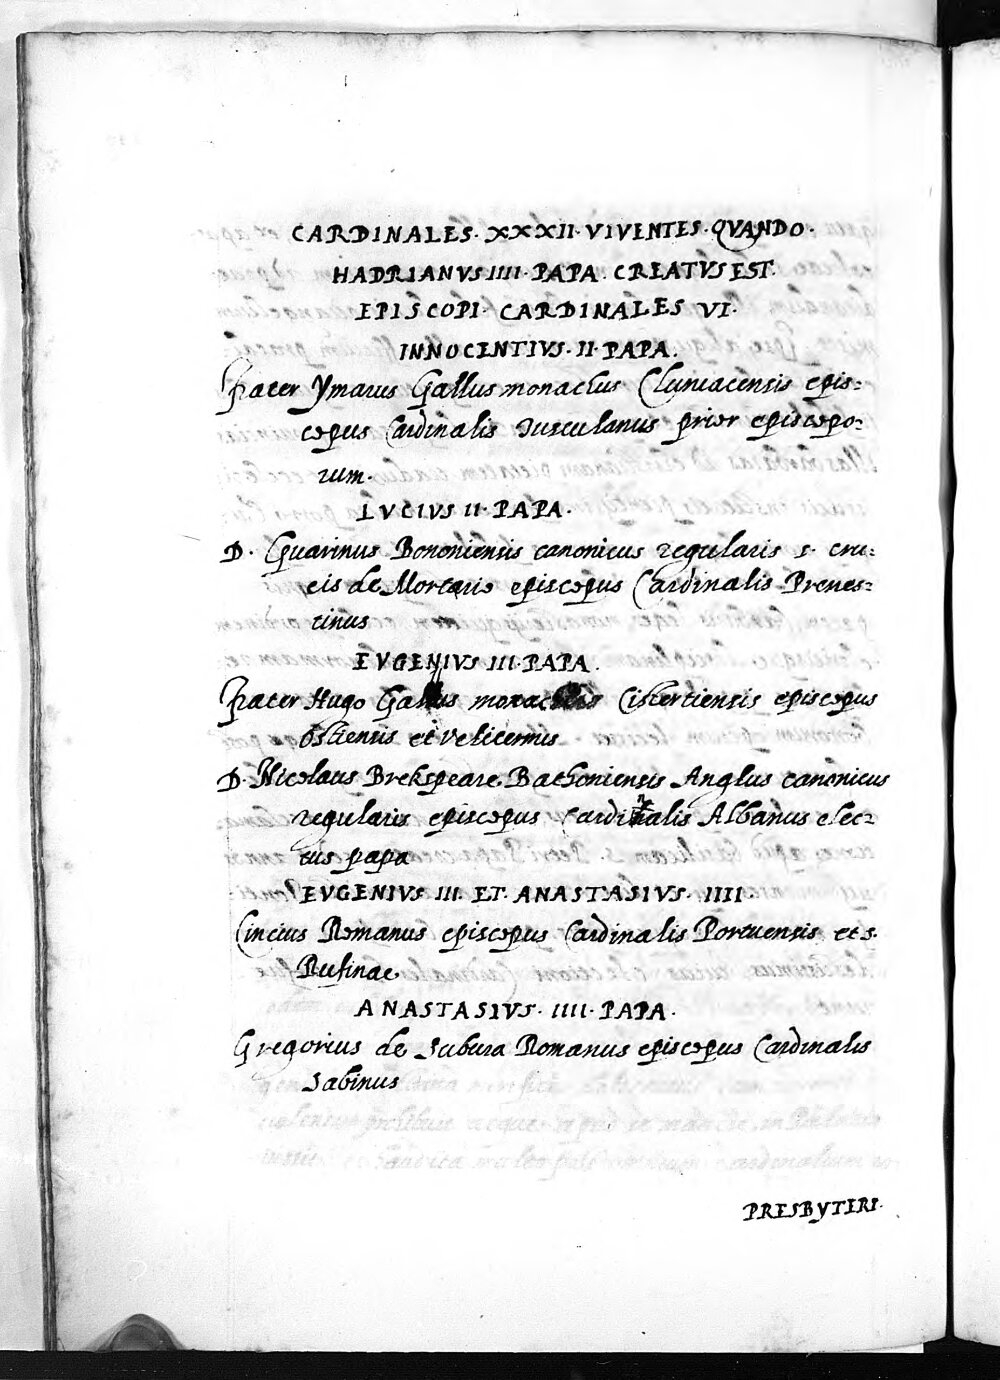 CARDINALES · XXXII · VIVENTES · QVANDO ·
HADRIANVS IIII · PAPA · CREATVS EST.
EPISCOPI · CARDINALES VI ·
INNOCENTIVS · II · PAPA .
Frater Ymarus Gallus monachus Cluniacensis epis=
copus Cardinalis Tusculanus prior episcopo=
rum ·
LVCIVS II · PAPA ·
D. Guarinus Bononiensis canonicus regularis s. cru=
cis de Mortario episcopus Cardinalis Prenes=
tinus
EVGENIVS III · PAPA .
Frater Hugo Gallus monachus Cistertiensis episcopus
Ostiensis et Veliternus
D. Nicolaus Brekspeare Bathoniensis Anglus canonicus
regularis episcopus Cardinalis Albanus elec=
tus papa
EVGENIVS III · ET · ANASTASIVS · IIII ·
Cincius Romanus episcopus Cardinalis Portuensis et s.
Rufinae
ANASTASIVS · IIII · PAPA ·
Gregorius de Subura Romanus episcopus Cardinalis
Sabinus
PRESBYTERI ·